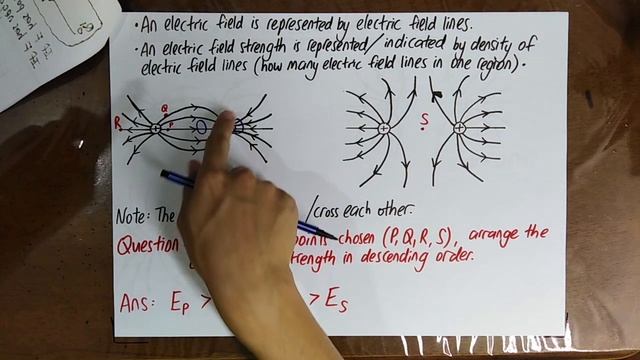 • An electric field is represented by electric field lines.
• An electric field strength is represented/indicated by density of
electric field lines (how many electric field lines in one region).
R Q P + + S +
Note: The /cross each other.
Question points chosen (P, Q, R, S), arrange the
strength in descending order.
Ans: E_P > > E_S